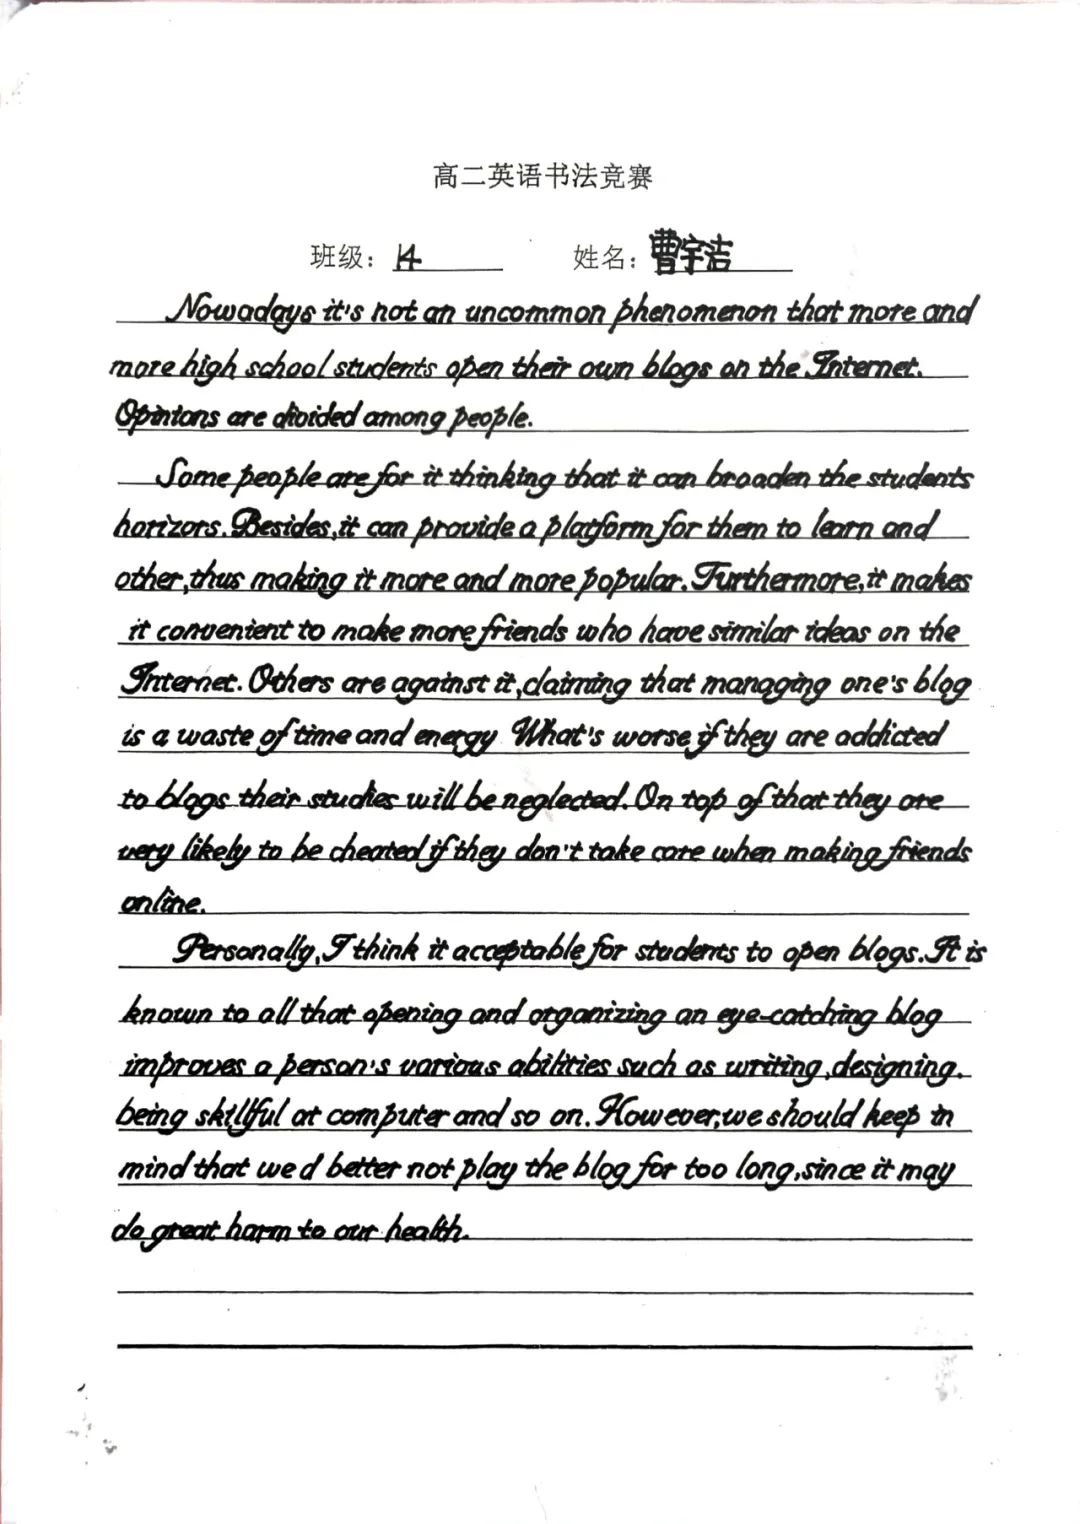 高二英语书法竞赛
班级：14 姓名：曹宇洁
Nowadays it's not an uncommon phenomenon that more and
more high school students open their own blogs on the Internet.
Opinions are divided among people.
Some people are for it thinking that it can broaden the students
horizors. Besides, it can provide a platform for them to learn and
other, thus making it more and more popular. Furthermore, it makes
it convenient to make more friends who have similar ideas on the
Internet. Others are against it, claiming that managing one's blog
is a waste of time and energy What's worse if they are addicted
to blogs their studies will be neglected. On top of that they are
very likely to be cheated if they don't take care when making friends
online.
Personally, I think it acceptable for students to open blogs. It is
known to all that opening and organizing an eye-catching blog
improves a person's various abilities such as writing, designing.
being skillful at computer and so on. However, we should keep in
mind that we d better not play the blog for too long, since it may
do great harm to our health.